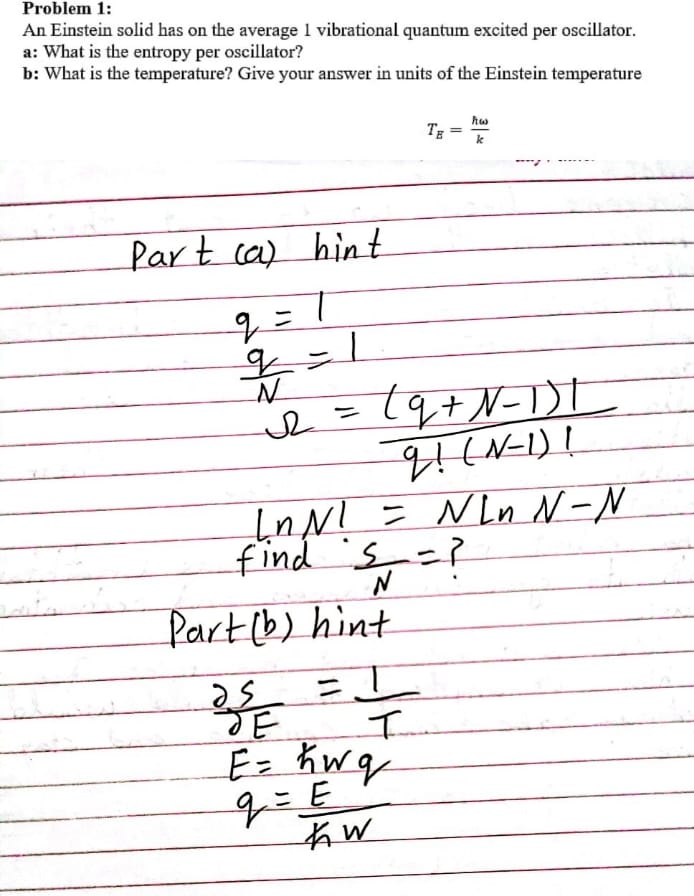 Problem 1:
An Einstein solid has on the average 1 vibrational quantum excited per oscillator.
a: What is the entropy per oscillator?
b: What is the temperature? Give your answer in units of the Einstein temperature
T_E = ħω/k
Part (a) hint
q = 1
q/N = 1
Ω = (q+N-1)!/q!(N-1)!
LnN! = NLn N-N
find S/N = ?
Part(b) hint
∂S/∂E = 1/T
E = ħwq
q = E/ħw